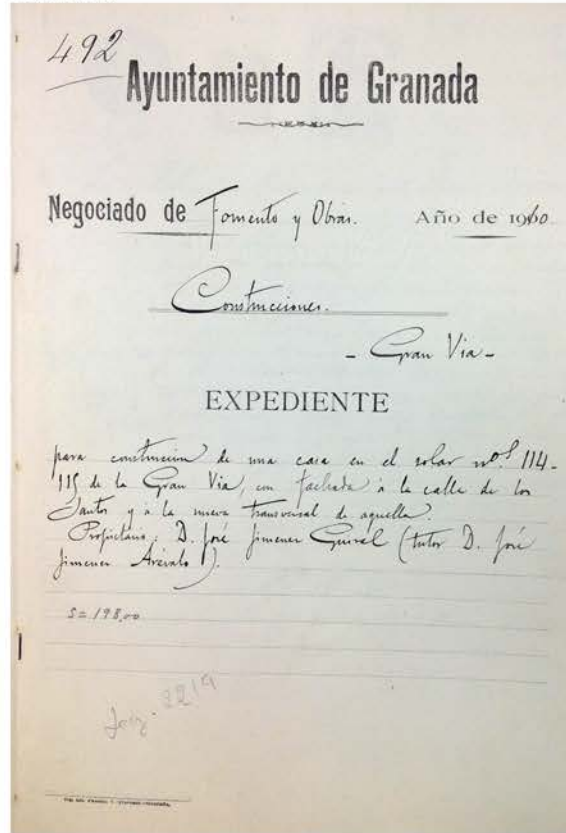 492
Ayuntamiento de Granada
Negociado de Fomento y Obras. Año de 1910.
Construcciones.
- Gran Via -
EXPEDIENTE
para construccion de una casa en el solar nos. 114-
115 de la Gran Via, con fachada á la calle de los
Santos y á la nueva transversal de aquella.
Propietario: D. José Jimenez Guiral (tutor D. José
Jimenez Arévalo).
S = 198,00
2219